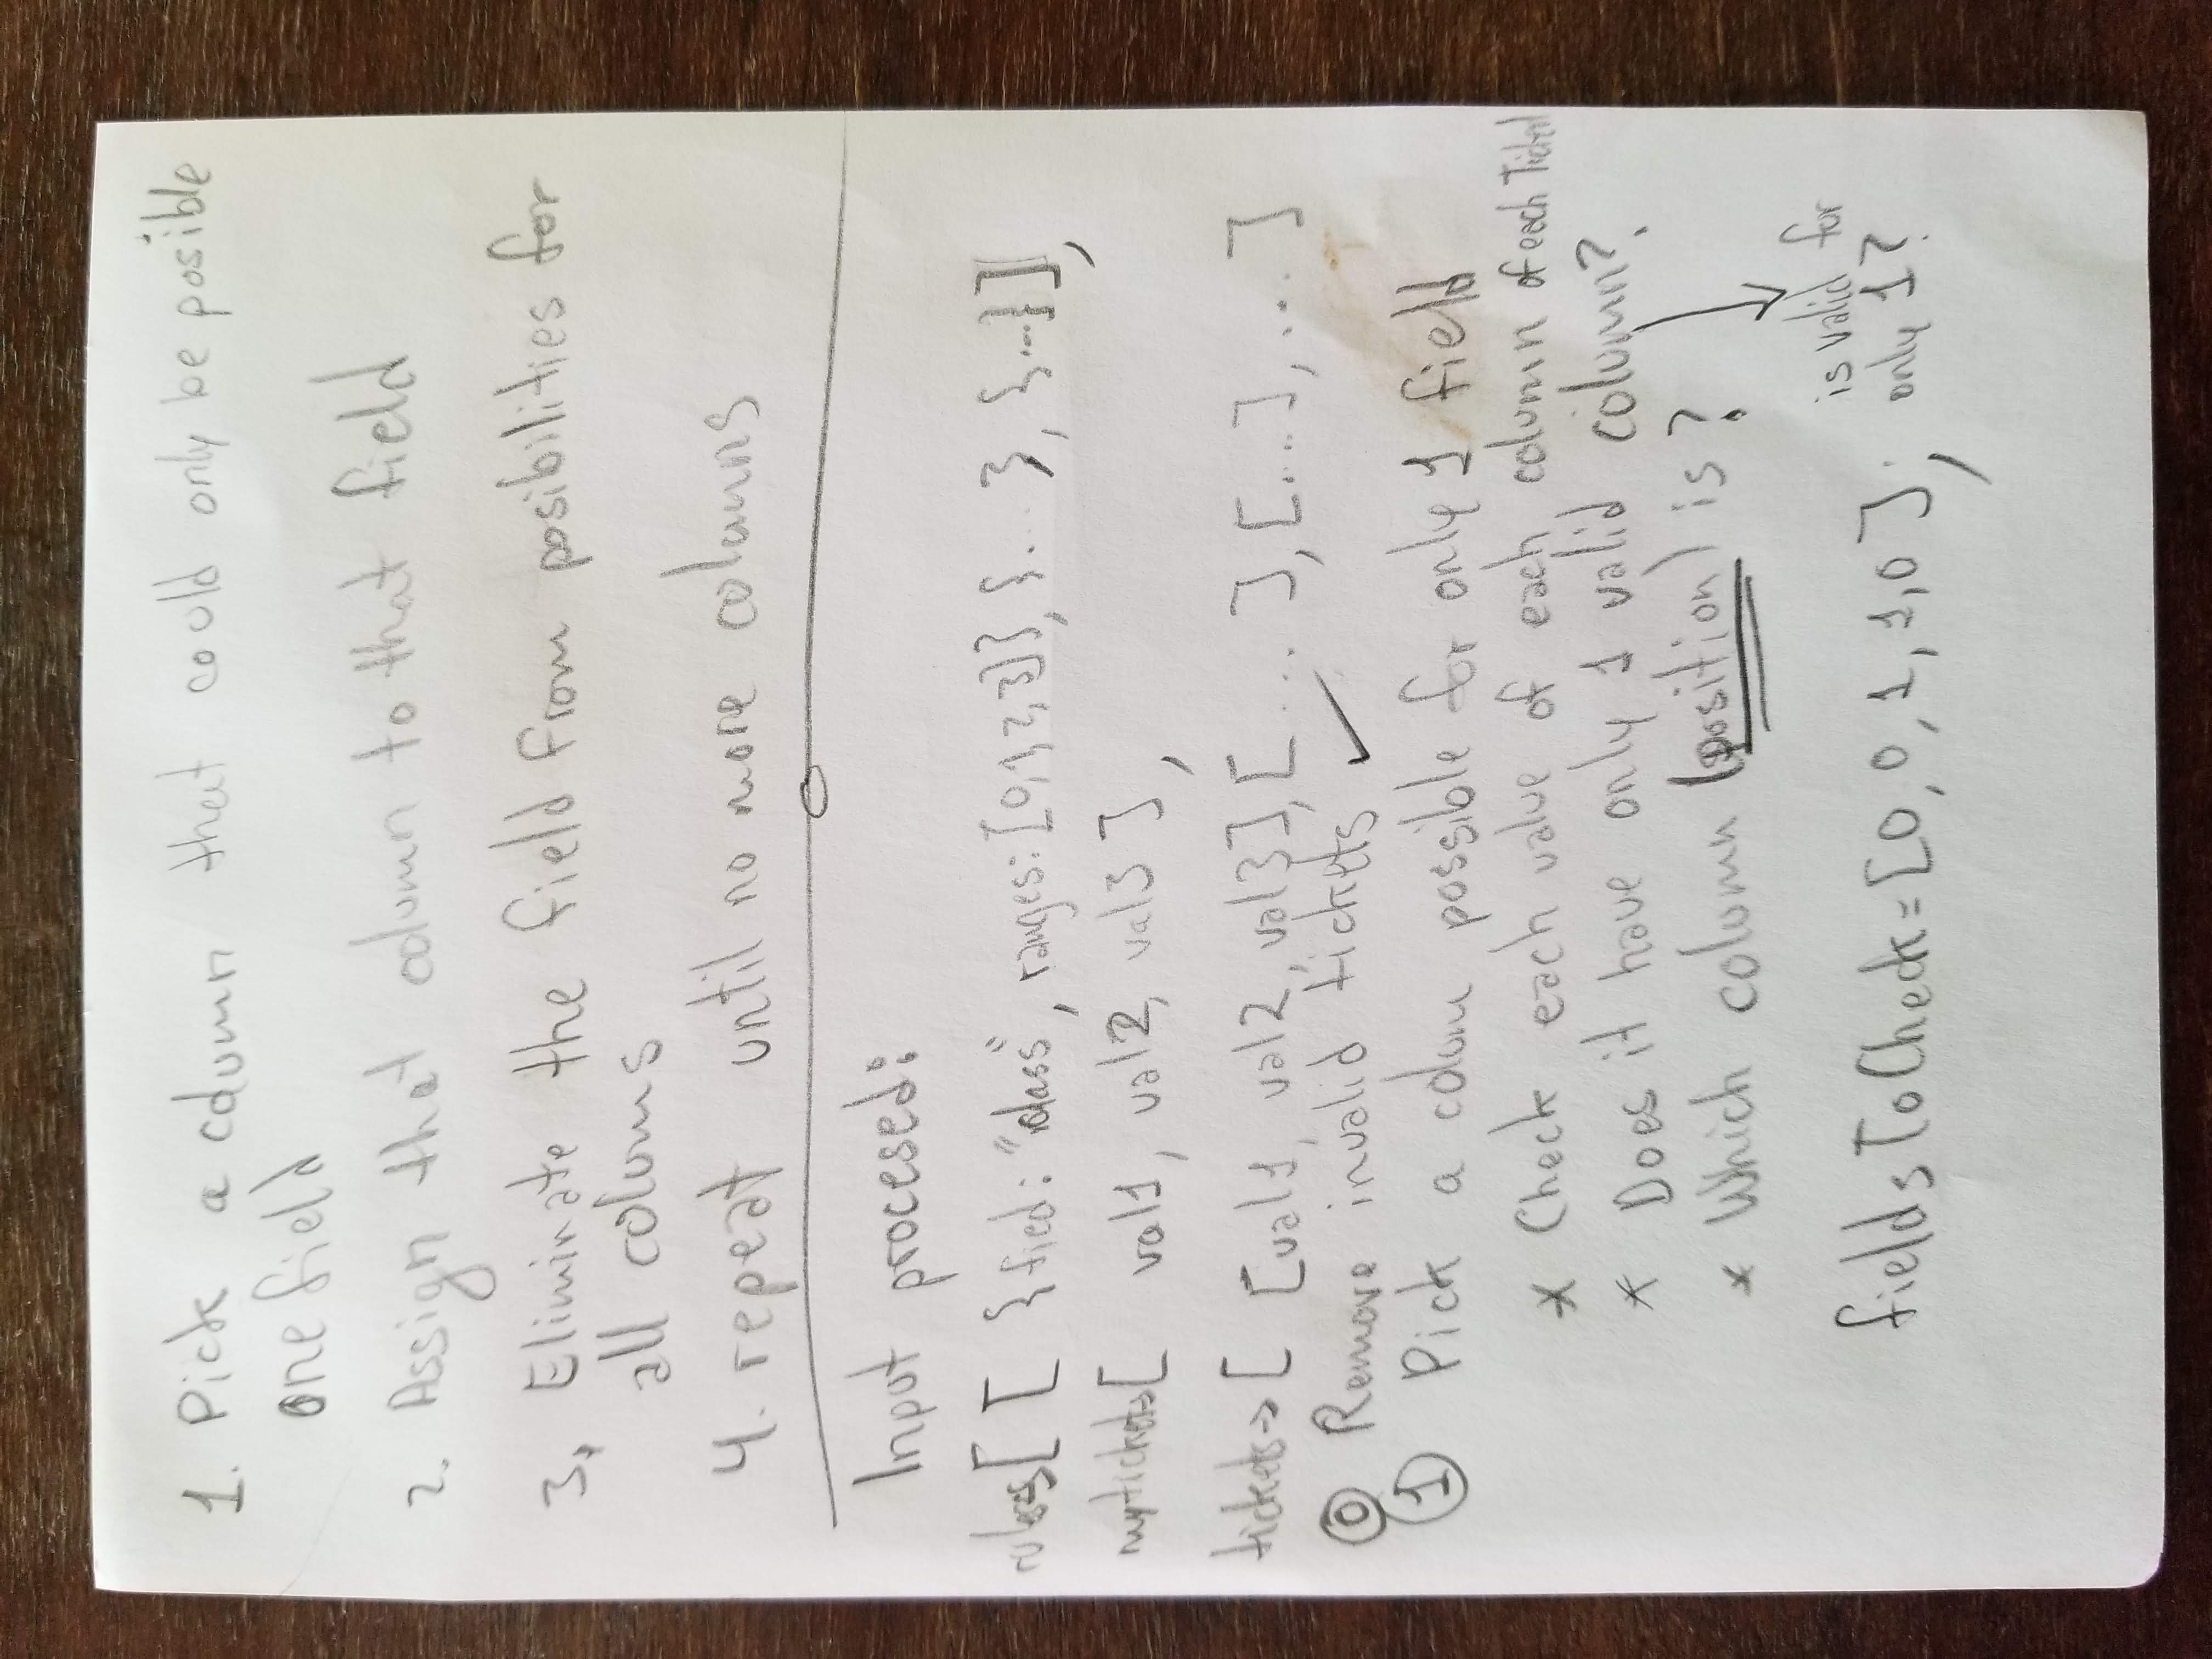 1. Pick a column that could only be posible
one field
2. Assign that column to that field
3. Eliminate the field from posibilities for
all colums
4. repeat until no more columns
Input procesed:
rules→[ [ {fied: "class", ranges: [0,1,2,3]}, {...}, {...}]],
mytickets→[ val1, val2, val3 ],
tickets→[ [val1, val2, val3], [....], [...], ... ]
0 Remove invalid tickets ✓
1 Pick a colum possible for only 1 field
* Check each value of each column of each Ticket
* Does it have only 1 valid column?
* Which column (position) is?
is valid for
only 1?
fieldsToCheck=[0, 0, 1, 1, 0];